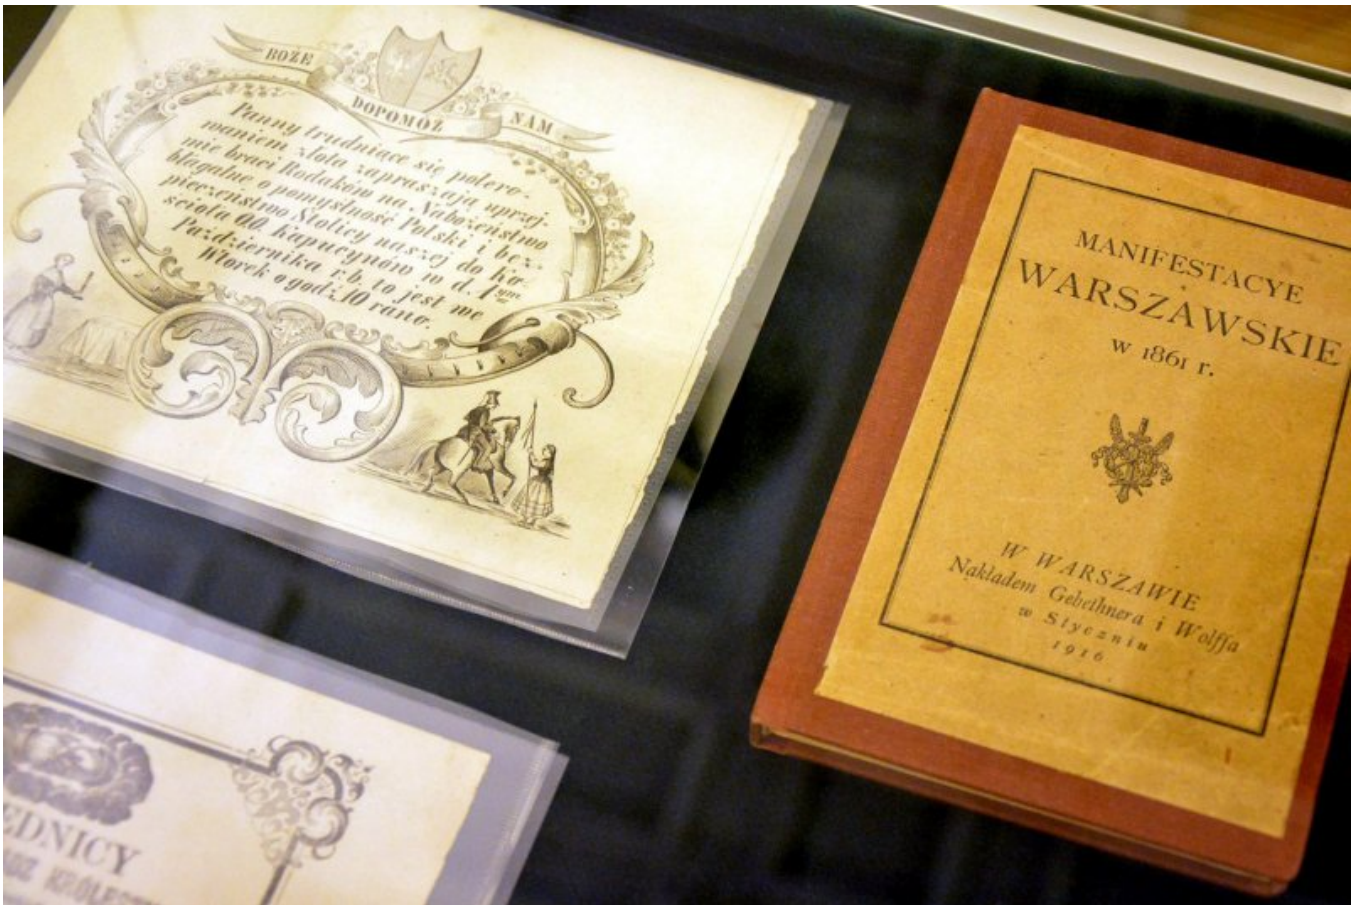 BOŻE
DOPOMÓŻ
NAM
Panny trudniące się polero-
waniem złota zapraszają uprzej-
mie braci Rodaków na Nabożeństwo
błagalne o pomyślność Polski i bez-
pieczeństwo Stolicy naszej do Ko-
ścioła OO. Kapucynów w d. 1ym
Października r.b. to jest we
Wtorek o godz. 10 rano.
MANIFESTACYE
WARSZAWSKIE
w 1861 r.
W WARSZAWIE
Nakładem Gebethnera i Wolffa
w Styczniu
1916
EDNICY